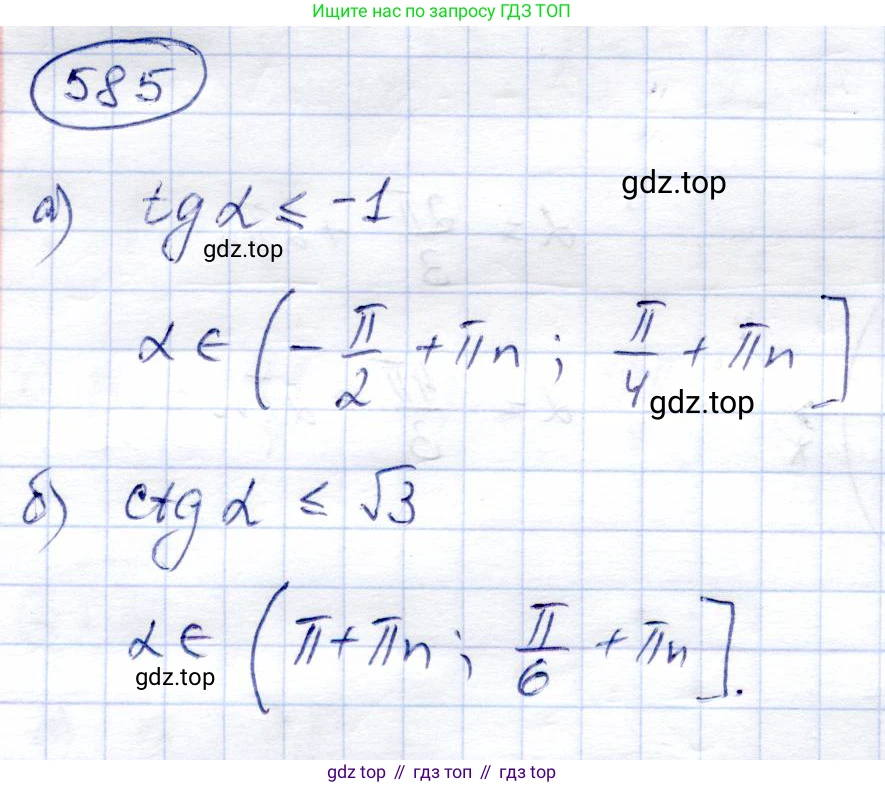 Ищите нас по запросу ГДЗ ТОП
585
gdz.top
а) tg α ≤ -1
gdz.top
α ∈ (-π/2 + πn ; π/4 + πn]
gdz.top
б) ctg α ≤ √3
α ∈ (π + πn ; π/6 + πn].
gdz.top
gdz top // гдз топ // gdz top